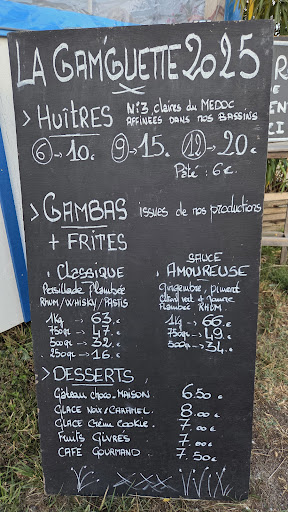 LA GAM'GUETTE 2025
> HUÎTRES N°3, claires du MEDOC
AFFINÉES DANS NOS BASSINS
6 → 10€ 9 → 15€ 12 → 20€
Pâté : 6€
> GAMBAS issues de nos productions
+ FRITES
. CLASSIQUE
Persillade flambée
RHUM/WHISKY/PASTIS
1kg → 63€
750gr → 47€
500gr → 32€
250gr → 16€
SAUCE
. AMOUREUSE
gingembre, piment
citron vert et jaune
flambée RHUM
1kg → 66€
750gr → 49€
500gr → 34€
> DESSERTS
Gâteau choco. MAISON 6.50€
GLACE NOIX/CARAMEL 8.00€
GLACE Crème COOKIE 7.00€
Fruits GIVRÉS 7.00€
CAFÉ GOURMAND 7.50€